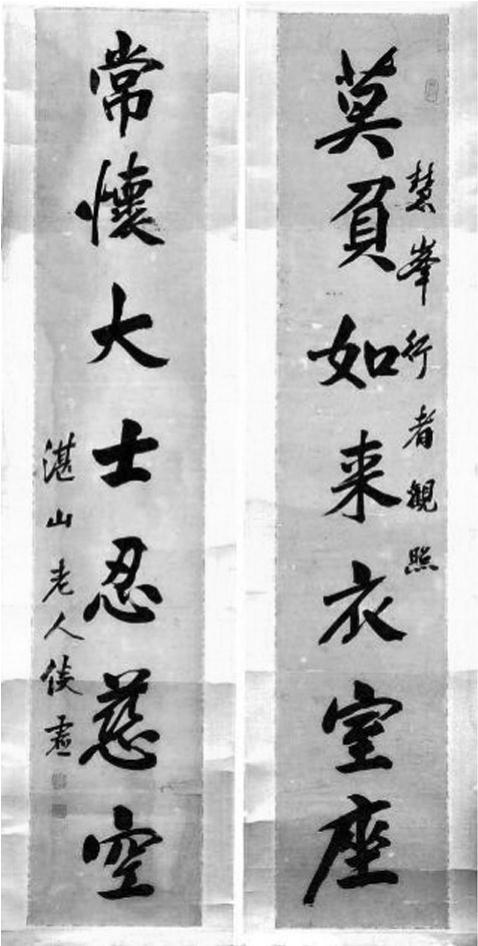 慧峯行者觀照
莫負如来衣室座
常懷大士忍慈空
湛山老人倓虛